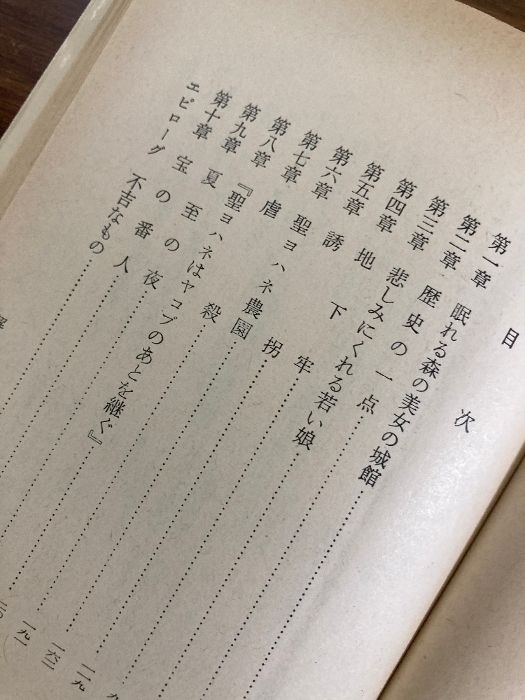 目次
第一章 眠れる森の美女の城館
第二章 歴史の一点
第三章 悲しみにくれる若い娘
第四章 地下牢
第五章 誘拐 一一九
第六章 聖ヨハネ農園 一六二
第七章 虐殺 一九一
第八章 『聖ヨハネはヤコブのあとを継ぐ』
第九章 夏至の夜
第十章 宝の番人
エピローグ 不吉なもの